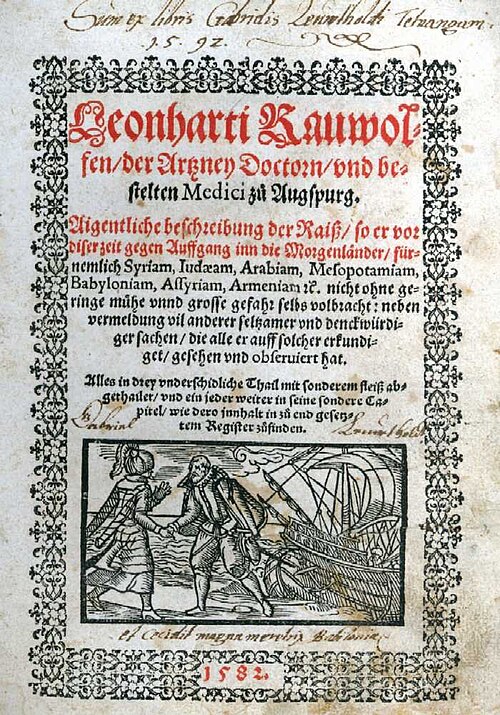 Sum ex libris Gabrielis
1592.
Leonharti Rauwol-
fen/ der Artzney Doctorn/ vnd be-
stelten Medici zů Augspurg.
Aigentliche beschreibung der Raiß/ so er vor
diser zeit gegen Auffgang inn die Morgenländer/ für-
nemlich Syriam, Iudæam, Arabiam, Mesopotamiam,
Babyloniam, Assyriam, Armeniam ꝛc. nicht ohne ge-
ringe mühe vnnd grosse gefahr selbs volbracht: neben
vermeldung vil anderer seltzamer vnd denckwürdi-
ger sachen/ die alle er auff solcher erkundi-
get/ gesehen vnd obseruiert hat.
Alles in drey vnderschidliche Thail mit sonderem fleiß ab-
gethailet/ vnd ein jeder weiter in seine sondere Ca-
pitel/ wie dero jnnhalt in zů end gesetz-
tem Register zůfinden.
Gabriel
et Cecidit magna meretrix Babilonia
1582.